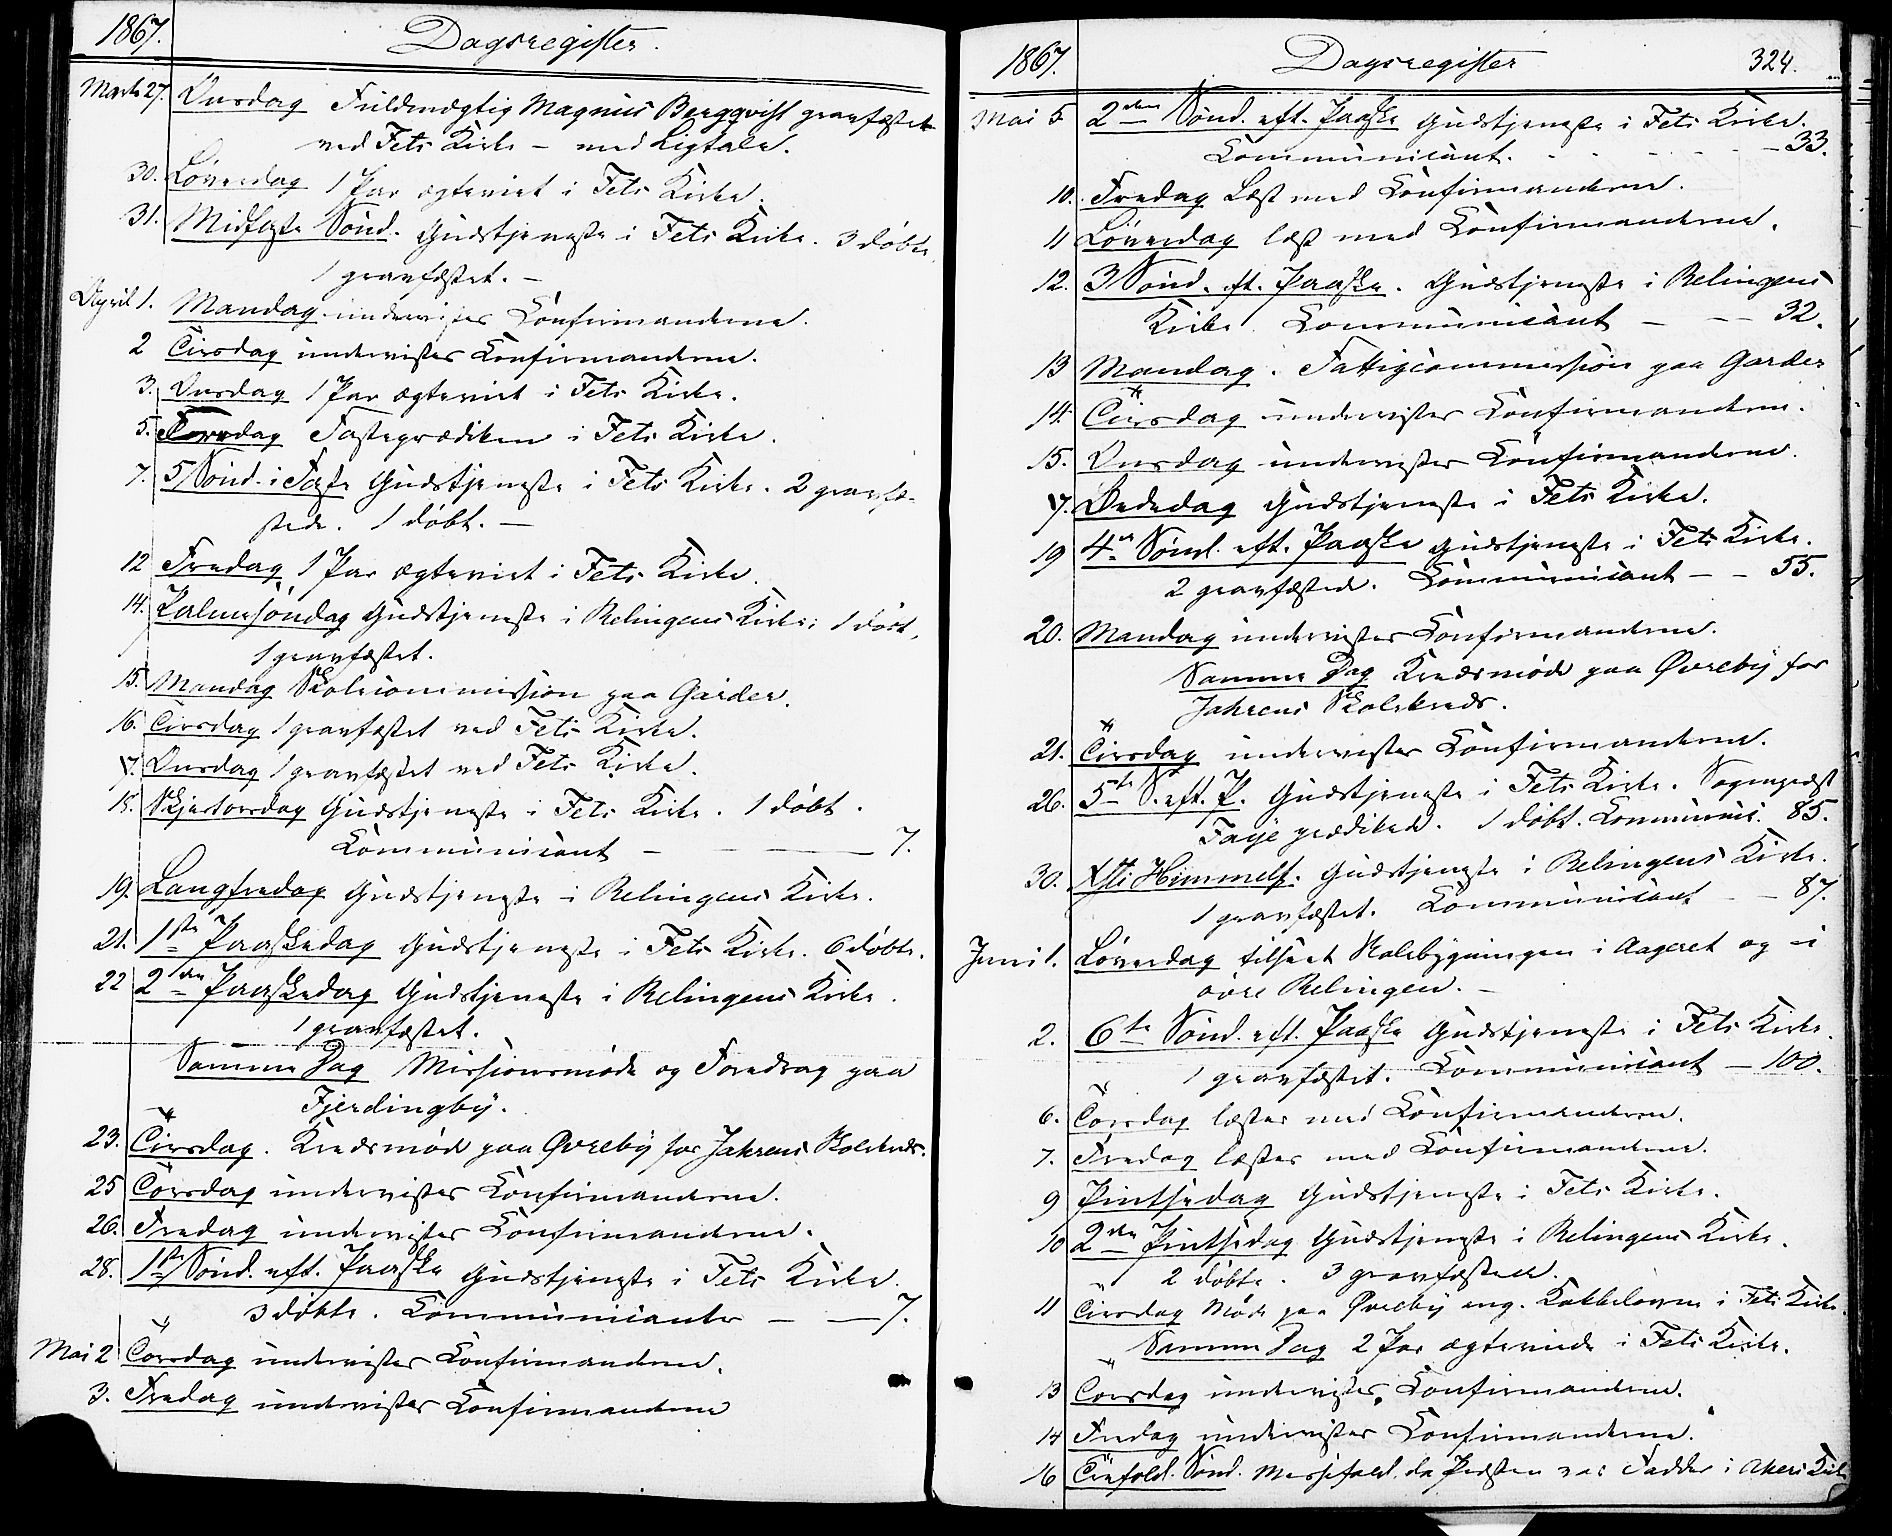 1867. Dagsregister.
Marts 27. Onsdag Fuldmægtig Magnus Bergqvist gravfæstet
ved Fets Kirke – med Ligtale.
30. Løverdag 1 Par ægteviet i Fets Kirke.
31. Midfaste Sønd. Gudstjeneste i Fets Kirke. 3 døbte
1 gravfæstet. –
April 1. Mandag undervistes Confirmanderne.
2 Tirsdag undervistes Confirmanderne.
3. Onsdag 1 Par ægteviet i Fets Kirke.
5. Fredag Fasteprædiken i Fets Kirke.
7. 5 Sønd. i Faste Gudstjeneste i Fets Kirke. 2 gravfæ-
stede. 1 døbt. –
12 Fredag 1 Par ægteviet i Fets Kirke.
14. Palmesøndag Gudstjeneste i Relingens Kirke; 1 døbt,
1 gravfæstet.
15. Mandag Skolecommission paa Garder.
16. Tirsdag 1 gravfæstet ved Fets Kirke.
17. Onsdag 1 gravfæstet ved Fets Kirke.
18. Skjertorsdag Gudstjeneste i Fets Kirke. 1 døbt.
Communicant – – — 7.
19. Langfredag Gudstjeneste i Relingens Kirke.
21. 1ste Paaskedag Gudstjeneste i Fets Kirke. 6 døbte.
22 2den Paaskedag Gudstjeneste i Relingens Kirke.
1 gravfæstet.
Samme Dag Missionsmøde og Foredrag paa
Fjerdingby.
23. Tirsdag. Kredsmøde paa Øvreby for Jahrens Skolekreds.
25 Torsdag undervistes Confirmanderne.
26. Fredag undervistes Confirmanderne.
28. 1ste Sønd. eft. Paaske Gudstjeneste i Fets Kirke.
3 døbte. Communicanter – — 7.
Mai 2 Torsdag undervistes Confirmanderne.
3. Fredag undervistes Confirmanderne
1867. Dagsregister 324.
Mai 5 2den Sønd. eft. Paaske Gudstjeneste i Fets Kirke.
Communicant. – – – – 33.
10. Fredag Læst med Confirmanderne.
11 Løverdag læst med Confirmanderne.
12. 3 Sønd. eft. Paaske. Gudstjeneste i Relingens
Kirke. Communicant – – – 32.
13 Mandag. Fattigcommission paa Garder
14. Tirsdag undervistes Confirmanderne.
15. Onsdag undervistes Confirmanderne.
17. Bededag Gudstjeneste i Fets Kirke.
19 4de Sønd. eft. Paaske Gudstjeneste i Fets Kirke.
2 gravfæstede. Communicant – – 55.
20. Mandag undervistes Confirmanderne.
Samme Dag Kredsmøde paa Øvreby for
Jahrens Skolekreds.
21. Tirsdag undervistes Confirmanderne.
26. 5te S. eft. P. Gudstjeneste i Fets Kirke. Sognepræst
Faye prædikede. 1 døbt. Communic. 85.
30. Xsti Himmelf. Gudstjeneste i Relingens Kirke.
1 gravfæstet. Communicant – – 87.
Juni 1. Løverdag tilseet Skolebygningen i Aageret og i
øvre Relingen. –
2. 6te Sønd. eft. Paaske Gudstjeneste i Fets Kirke.
1 gravfæstet. Communicant – 100.
6. Torsdag læstes med Confirmanderne.
7. Fredag læstes med Confirmanderne.
9 Pintsedag Gudstjeneste i Fets Kirke.
10 2den Pintsedag Gudstjeneste i Relingens Kirke.
2 døbte. 3 gravfæstede.
11 Tirsdag Møde paa Øvreby ang. Kakkelovne i Fets Kirke.
Samme Dag 2 Par ægteviede i Fets Kirke.
13 Torsdag undervistes Confirmanderne.
14 Fredag undervistes Confirmanderne.
16 Trefold. Sønd. Messefald, da Præsten var Fadder i Akers Kirke